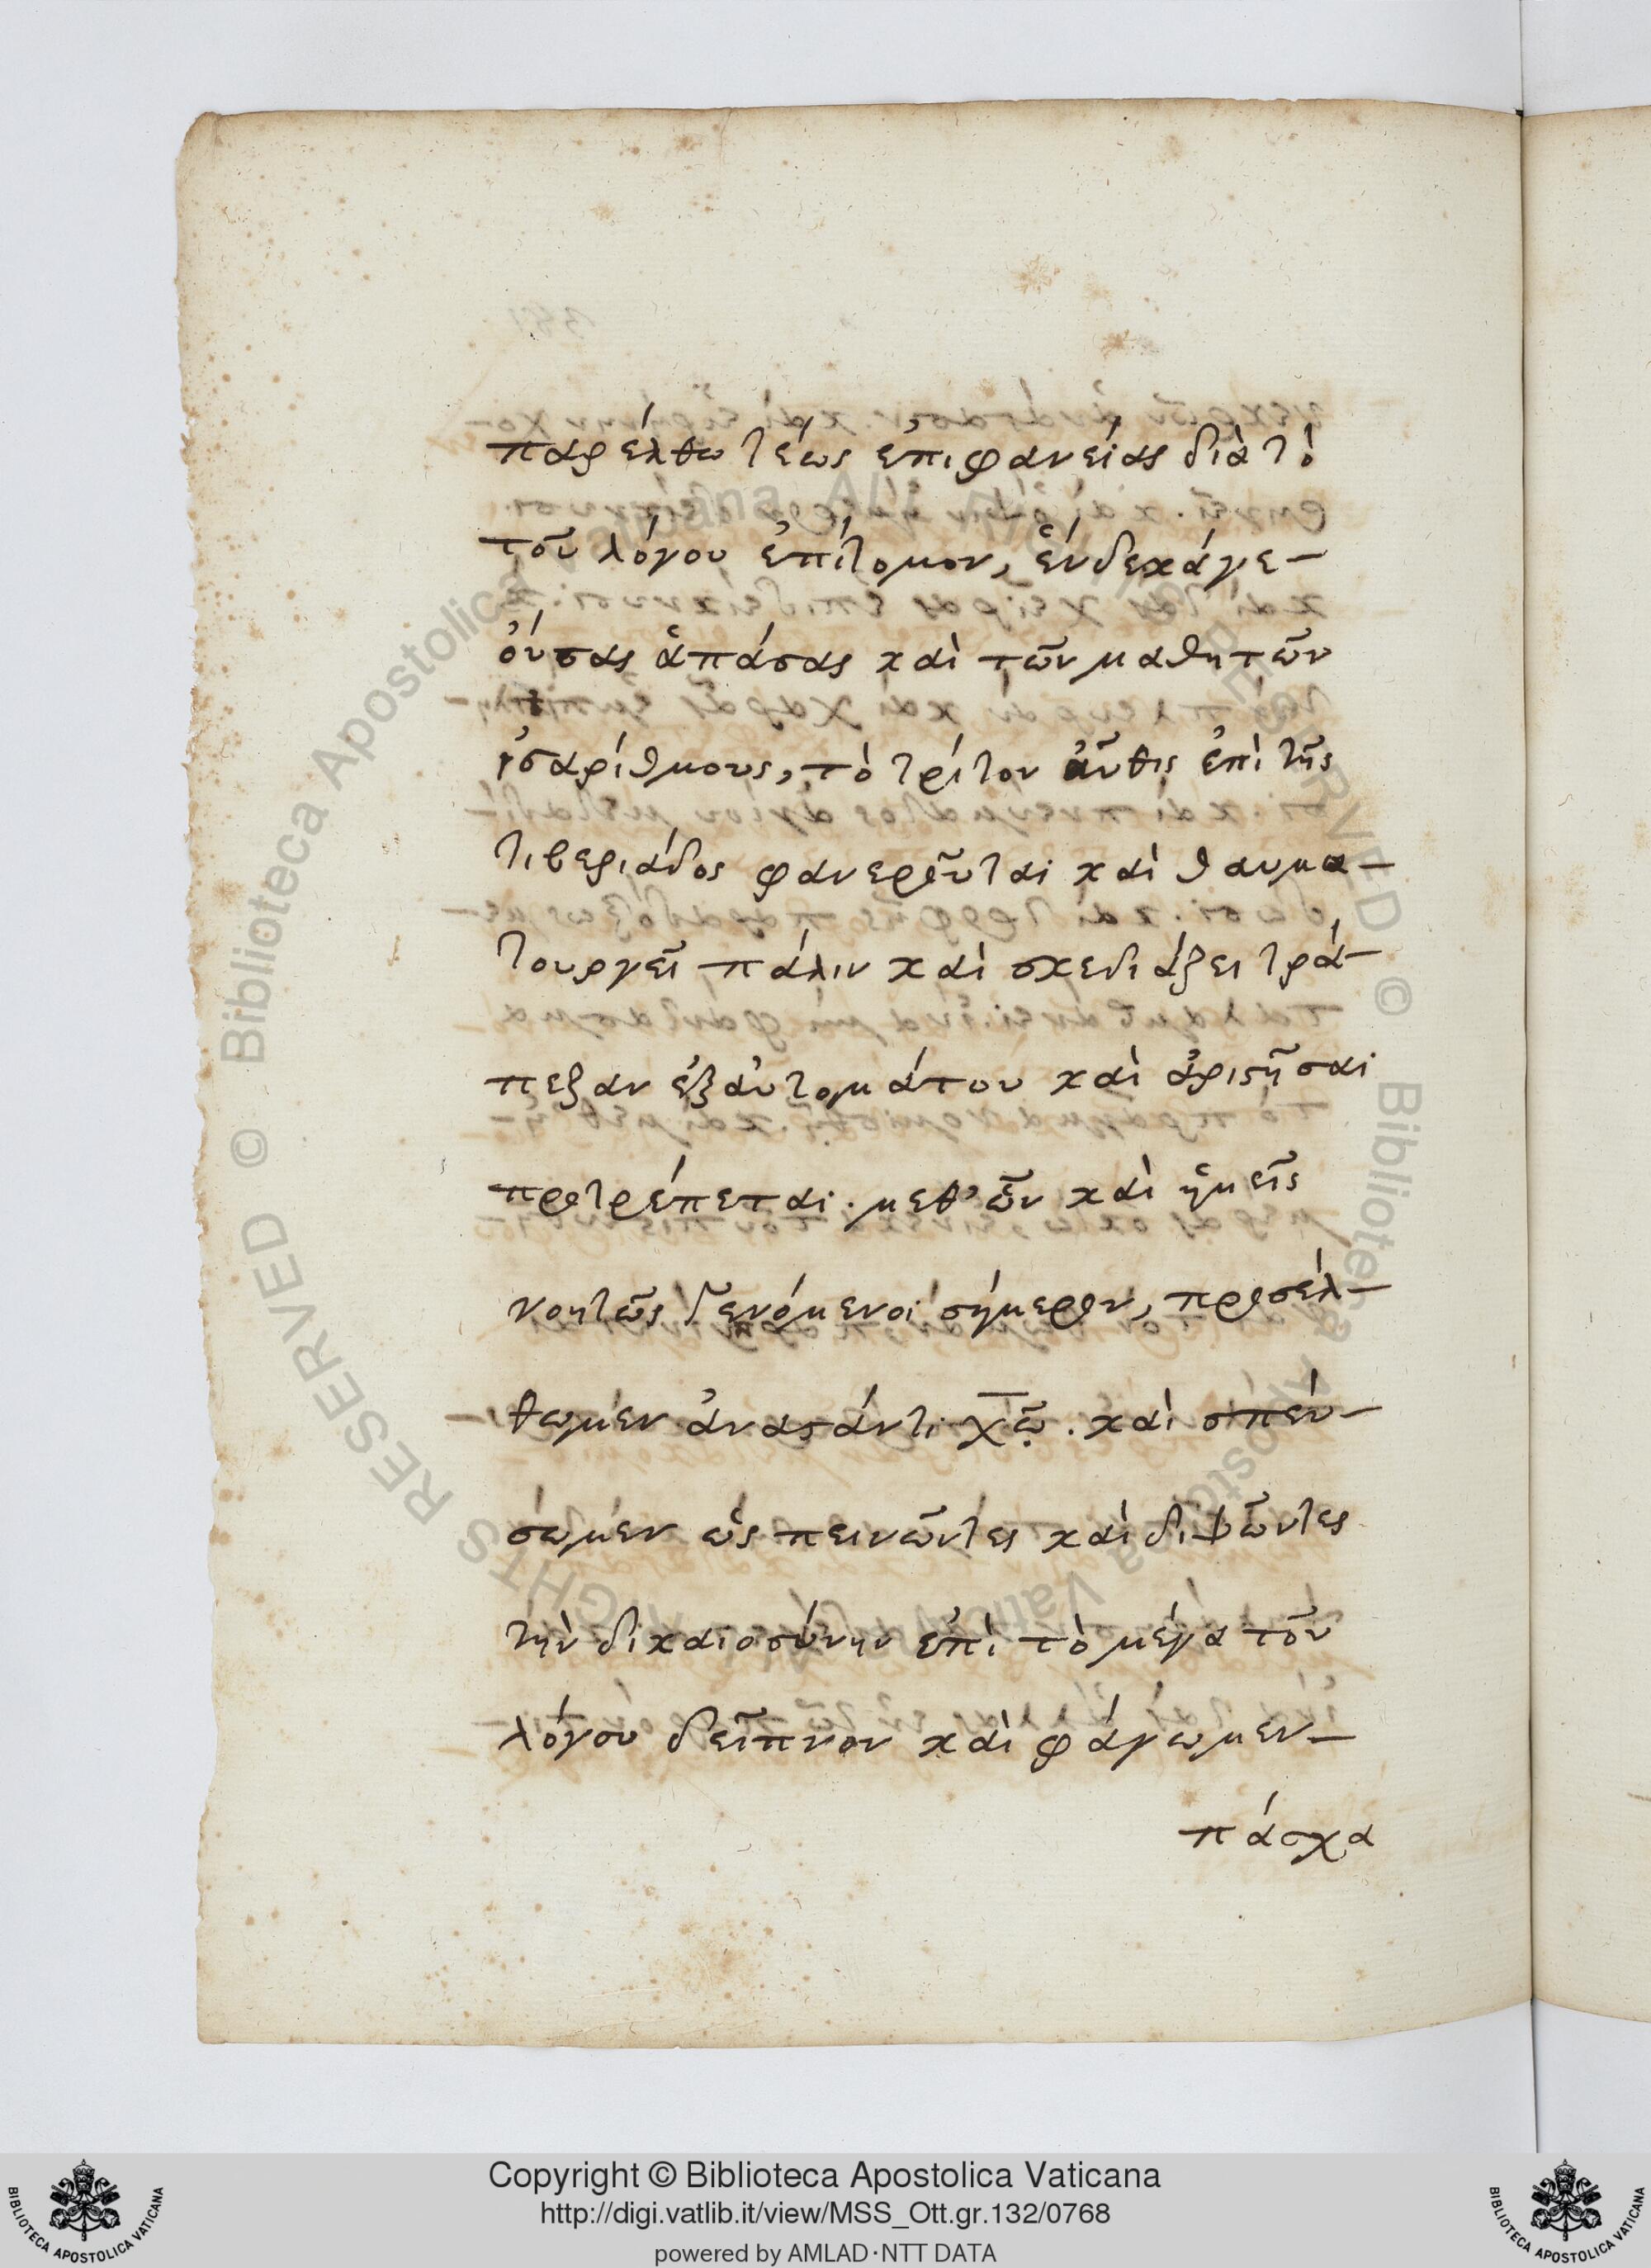 παρέλθω τέως ἐπιφανείας διὰ τὸ
τοῦ λόγου ἐπίτομον, ἕνδεκά γε-
ὄυσας ἁπάσας καὶ τῶν μαθητῶν
ἰσαρίθμους, τὸ τρίτον ἆυθις ἐπὶ τῆς
τιβεριάδος φανεροῦται καὶ θαυμα-
τουργεῖ πάλιν καὶ σχεδιάζει τρά-
πεζαν ἐξ ἀυτομάτου καὶ ἀριστῆσαι
προτρέπεται. μεθ' ὧν καὶ ἡμεῖς
νοητῶς γενόμενοι σήμερον, προσέλ-
θωμεν ἀναστάντι χῷ. καὶ σπέυ-
σωμεν ὡς πεινῶντες καὶ διψῶντες
τὴν δικαιοσύνην ἐπὶ τὸ μέγα τοῦ
λόγου δεῖπνον καὶ φάγωμεν-
πάσχα
Biblioteca Apostolica Vaticana ALL RIGHTS RESERVED © Biblioteca Apostolica Vaticana ALL RIGHTS RESERVED ©
Copyright © Biblioteca Apostolica Vaticana
http://digi.vatlib.it/view/MSS_Ott.gr.132/0768
powered by AMLAD·NTT DATA
BIBLIOTECA APOSTOLICA VATICANA
BIBLIOTECA APOSTOLICA VATICANA